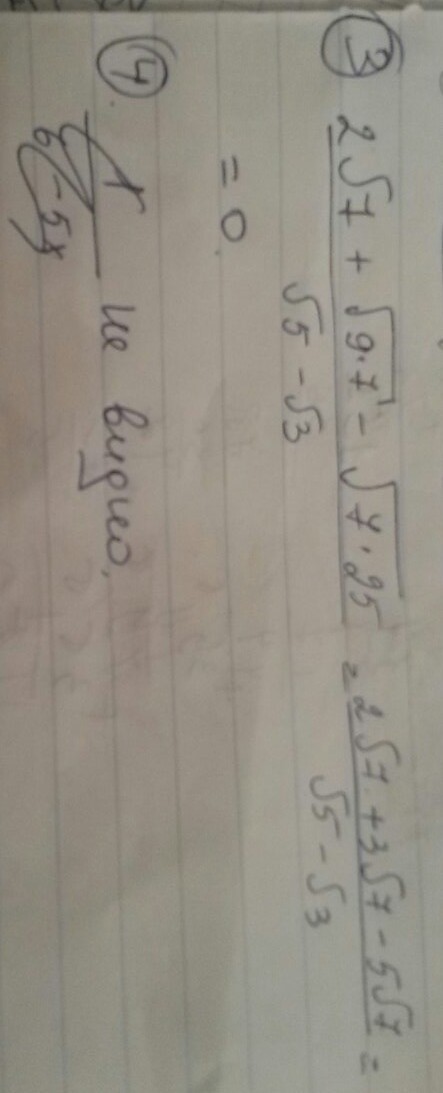 ③ (2√7 + √(9·7) - √(7·25))/(√5 - √3) = (2√7 + 3√7 - 5√7)/(√5 - √3) =
= 0.
④. не видно.